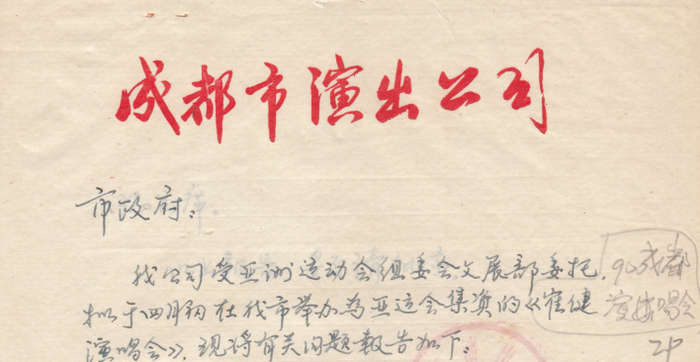 成都市演出公司
市政府:
我公司受亚洲运动会组委会文展部委托,
拟于四月初在我市举办为亚运会集资的《崔健
演唱会》,现将有关问题报告如下:
90成都
演唱会
2P